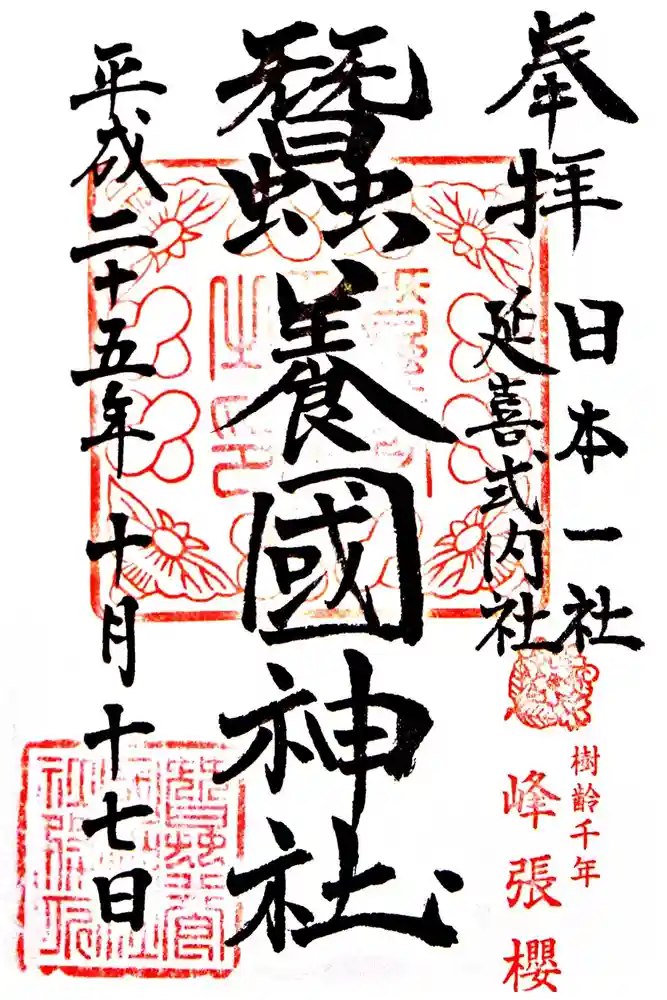 奉拝
日本一社
延喜式内社
樹齢千年
峰張櫻
蠶養國神社
平成二十五年 十月十七日